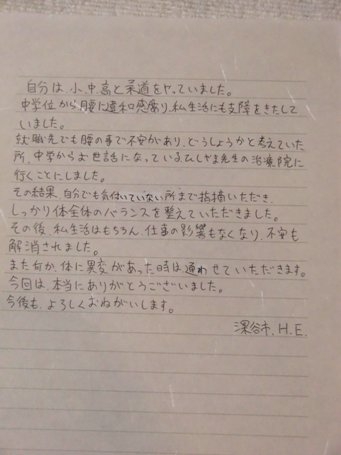 自分は、小、中、高と柔道をやっていました。
中学位から腰に違和感あり、私生活にも支障をきたして
いました。
就職先でも腰の事で不安があり、どうしようかと考えていた
所、中学からお世話になっているひしやま先生の治療院に
行くことにしました。
その結果、自分でも気付いていない所まで指摘いただき、
しっかり体全体のバランスを整えていただきました。
その後、私生活はもちろん、仕事の影響もなくなり、不安も
解消されました。
また何か、体に異変があった時は通わせていただきます。
今回は、本当にありがとうございました。
今後も、よろしくおねがいします。
深谷市、H.E.